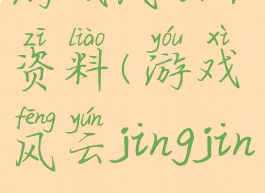 zī liào yóu xì
资料(游戏
fēng yún
风云jingjin